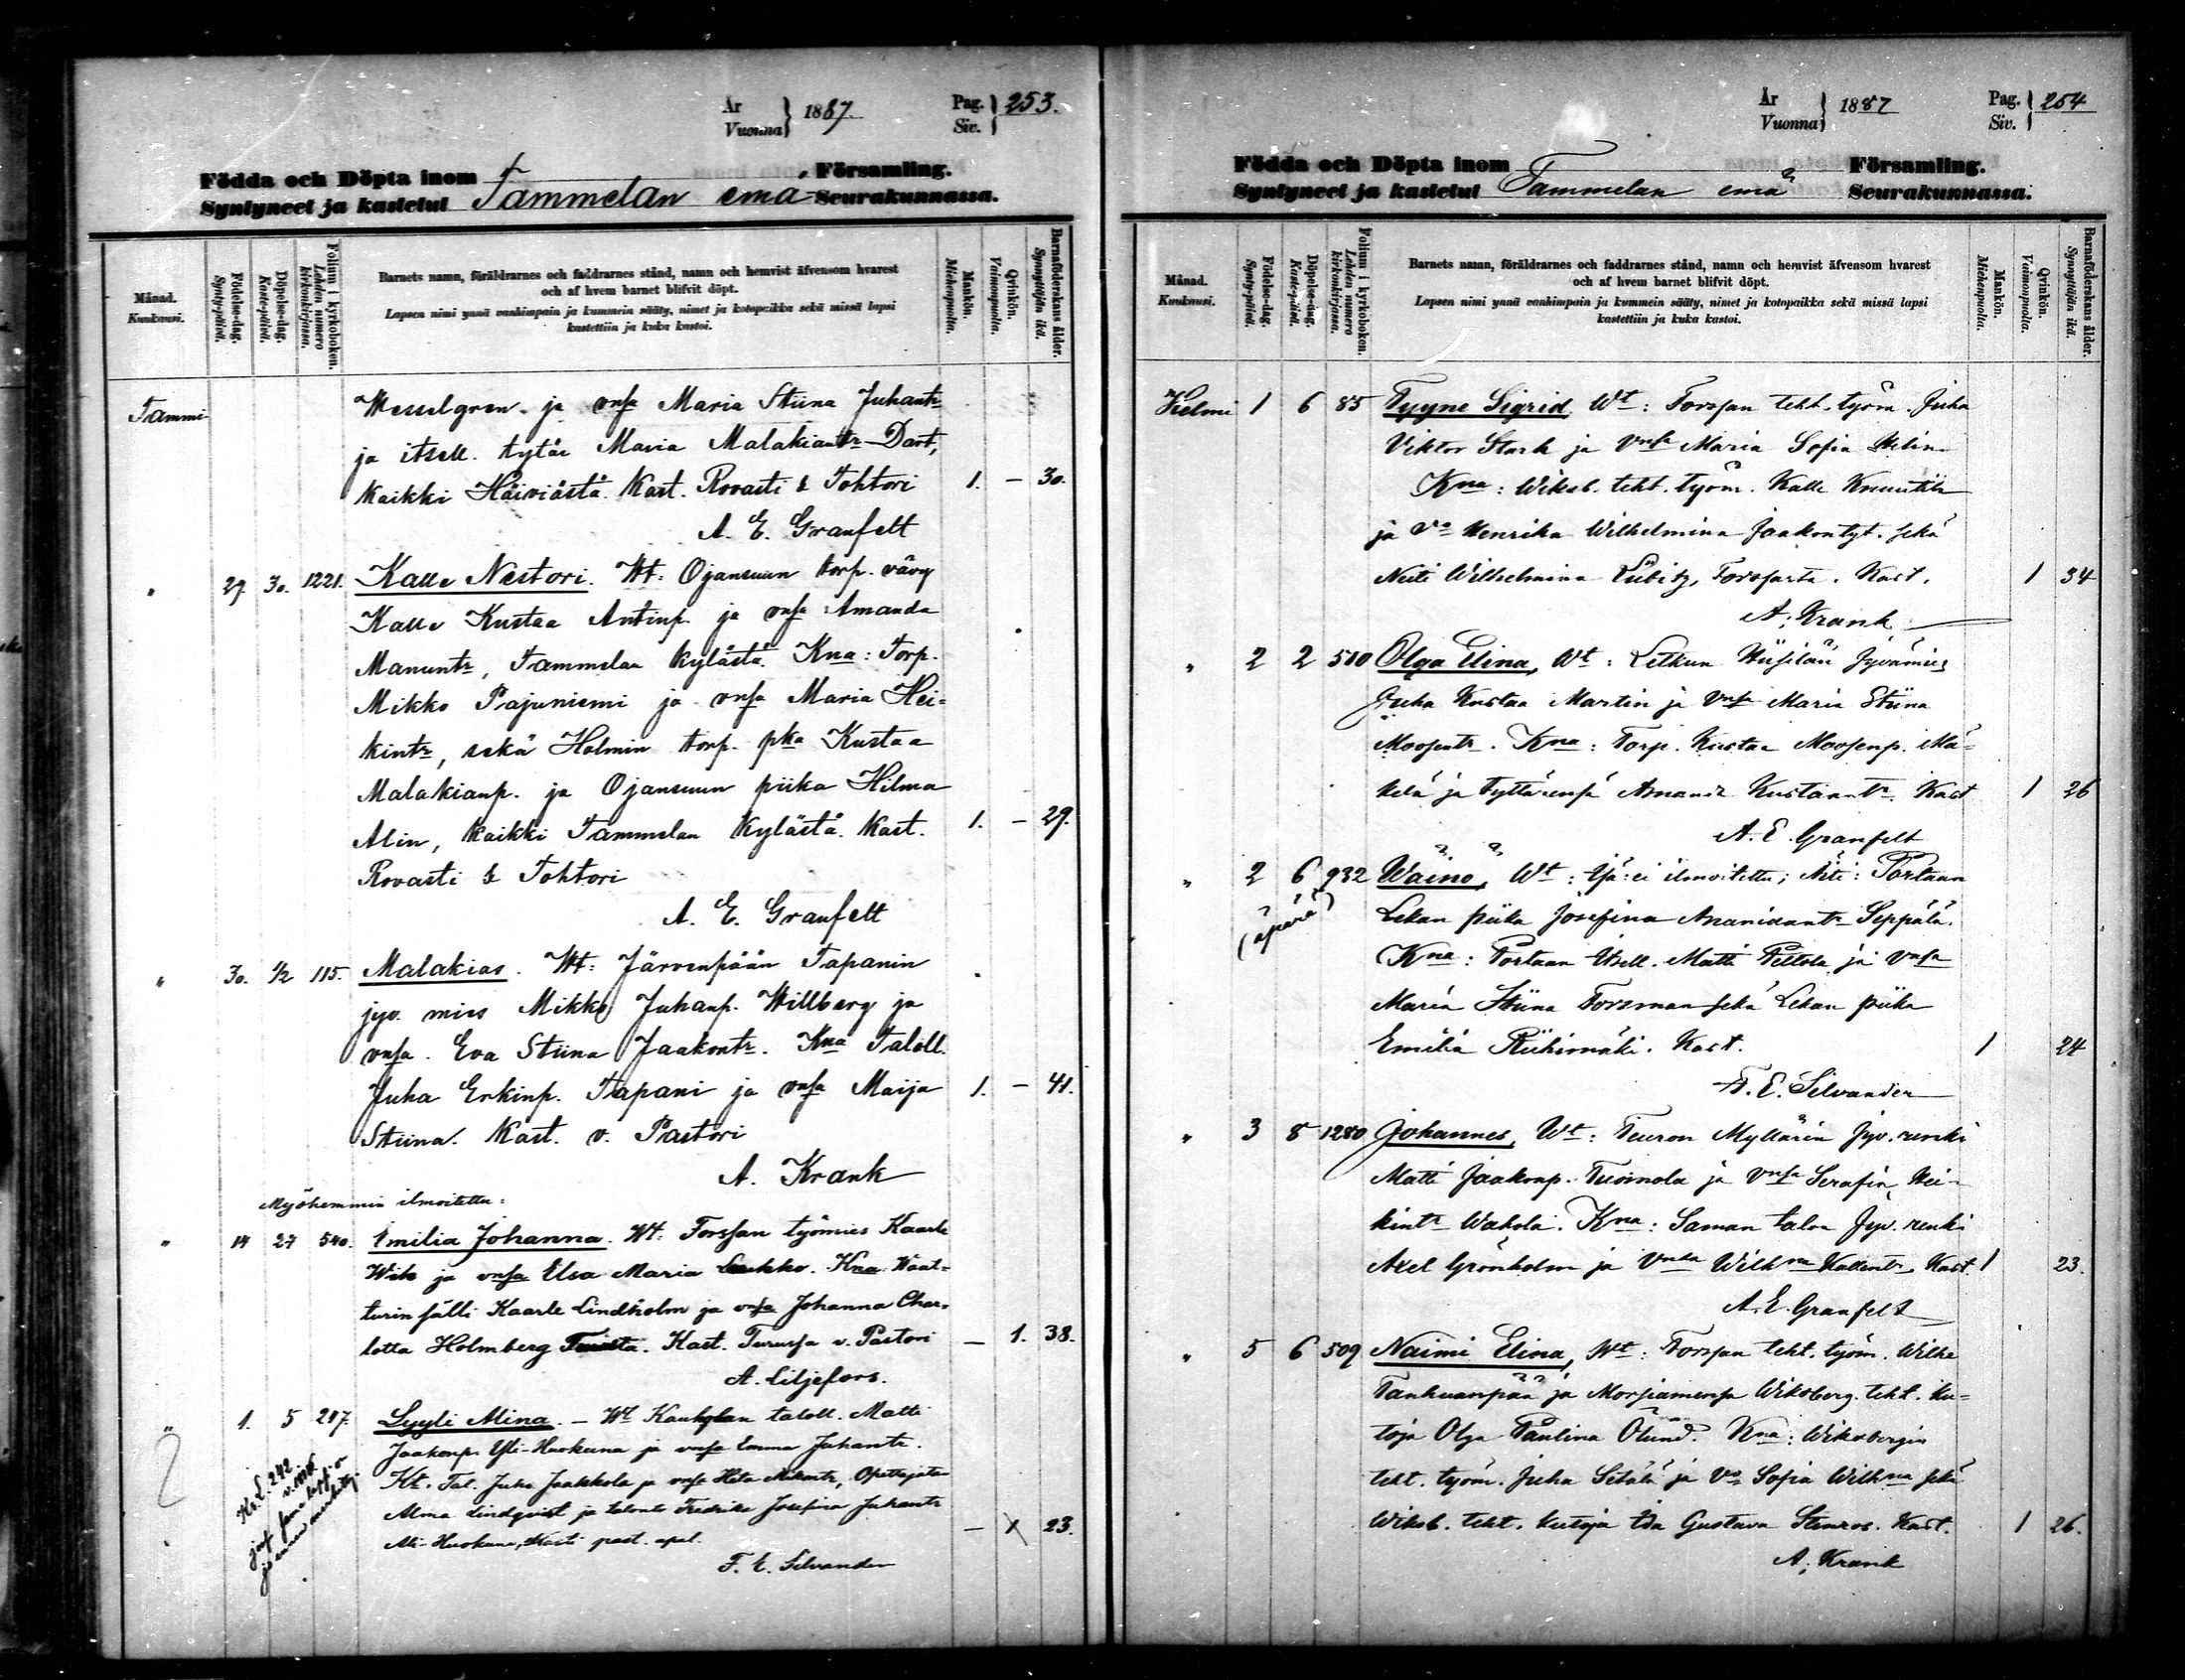 År
Vuonna } 1887.
Pag.
Siv. } 253.
Födda och Döpta inom
Syntyneet ja kastetut Tammelan emä Församling.
Seurakunnassa.
Månad.
Kuukausi.
Födelse-dag.
Synty-päivä.
Döpelse-dag.
Kaste-päivä.
Folium i kyrkoboken.
Lehden numero kirkonkirjassa.
Barnets namn, föräldrarnes och faddrarnes stånd, namn och hemvist äfvensom hvarest
och af hvem barnet blifvit döpt.
Lapsen nimi ynnä vanhimpain ja kummein sääty, nimet ja kotopaikka sekä missä lapsi
kastettiin ja kuka kastoi.
Mankön.
Miehenpuolia.
Qvinkön.
Vaimonpuolia.
Barnaföderskans ålder.
Synnyttäjän ikä.
Tammi Wesselgren ja vmsa Maria Stiina Juhantr
ja itsell. tytär Maria Malakiantr Dart,
kaikki Häiviästä. Kast. Rovasti & Tohtori 1. – 30.
A. E. Granfelt
" 29 30. 1221. Kalle Nestori. Wt: Ojansuun torp. vävy
Kalle Kustaa Antinp. ja vmsa Amanda
Manuntr, Tammelan kylästä. Kna: Torp.
Mikko Pajuniemi ja vmsa Maria Hei=
kintr, sekä Holmin torp. pka Kustaa
Malakianp. ja Ojansuun piika Hilma
Alin, kaikki Tammelan kylästä. Kast. 1. – 29.
Rovasti & Tohtori
A. E. Granfelt
" 30. 1/2 115. Malakias. Wt: Järvenpään Tapanin
jyv. mies Mikko Juhanp. Willberg ja
vmsa. Eva Stiina Jaakontr. Kna Taloll.
Juha Erkinp. Tapani ja vmsa Maija 1. – 41.
Stiina. Kast. v. Pastori
A. Krank
Myöhemmin ilmoitettu:
" 14 27 540. Emilia Johanna. Wt: Forssan työmies Kaarle
Wik ja vmsa Elsa Maria Leukko. Kna Waat=
turin sälli Kaarle Lindholm ja vmsa Johanna Char=
lotta Holmberg Turusta. Kast. Turussa v. Pastori – 1. 38.
A. Liljefors.
" 1. 5 217. Lyyli Miina. – Wt Kaukolan taloll. Matti
Jaakonp. Yli-Huokuna ja vmsa Emma Juhantr.
Kt. Tal. Juha Jaakkola ja vmsa Heta Mikontr, Opettajatar
Alma Lindqvist ja talont. Fredrika Josefina Juhantr
Ali-Huokuna, Kasti past. apul. – X 23.
F. E. Silvander
Ks. S. 242
År
Vuonna } 1887
Pag.
Siv. } 254
Födda och Döpta inom
Syntyneet ja kastetut Tammelan emä Församling.
Seurakunnassa.
Månad.
Kuukausi.
Födelse-dag.
Synty-päivä.
Döpelse-dag.
Kaste-päivä.
Folium i kyrkoboken.
Lehden numero kirkonkirjassa.
Barnets namn, föräldrarnes och faddrarnes stånd, namn och hemvist äfvensom hvarest
och af hvem barnet blifvit döpt.
Lapsen nimi ynnä vanhimpain ja kummein sääty, nimet ja kotopaikka sekä missä lapsi
kastettiin ja kuka kastoi.
Mankön.
Miehenpuolia.
Qvinkön.
Vaimonpuolia.
Barnaföderskans ålder.
Synnyttäjän ikä.
Helmi 1 6 85 Tyyne Sigrid, Wt: Forssan teht. työm. Juha
Viktor Stark ja Vmsa Maria Sofia Helin.
Kna: Wiksb. teht. työm. Kalle Knuutila
ja Vo Henrika Wilhelmina Jaakontyt. sekä
Neiti Wilhelmina Lübitz, Forssasta. Kast. 1 34
A. Krank
" 2 2 510 Olga Elina, Wt: Letkun Hiisilän jyvämies
Juha Kustaa Martin ja Vmsa Maria Stiina
Moosentr. Kna: Torp. Kustaa Moosenp. Mä=
kelä ja tyttärensä Amanda Kustaantr. Kast 1 26
A. E. Granfelt
" 2 6 932 Wäinö, Wt: Isä: ei ilmoitettu; Äiti: Portaan
(äpärä) Lekan piika Josefina Ananiaantr Seppälä.
Kna: Portaan itsell. Matti Peltola ja Vmsa
Maria Stiina Forsman sekä Lekan piika
Emilia Riihimäki. Kast. 1 24
F. E. Silvander
" 3 8 1280 Johannes, Wt: Teuron Myllärin jyv. renki
Matti Jaakonp. Tuomola ja Vmsa Serafia, Hei-
kintr Wahola. Kna: Saman talon jyv. renki
Axel Grönholm ja Vmsa Wilhna Kallentr. Kast. 1 23.
A. E. Granfelt
" 5 6 509 Naimi Elina, Wt: Forssan teht. työm. Wilhe
Tanhuanpää ja Morsiamensa Wiksberg. teht. ku=
toja Olga Paulina Ölund. Kna: Wiksbergin
teht. työm. Juha Setälä ja Vo Sofia Wilhna sekä
Wiksb. teht. kutoja Ida Gustava Stenros. Kast. 1 26.
A. Krank